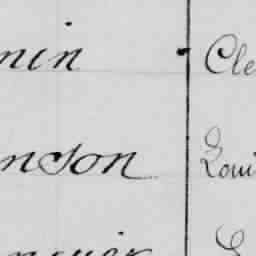 nin Cle
nson Loui